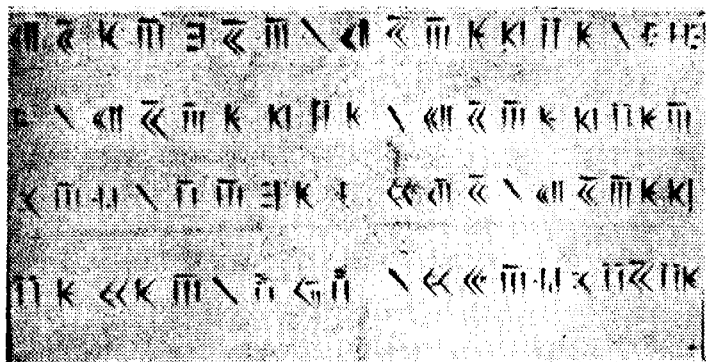 𐎧𐏁𐎹𐎠𐎼𐏁𐎠𐏐𐎧𐏁𐎠𐎹𐎰𐎡𐎹𐏐𐎺𐏀𐎼
𐎣𐏐𐎧𐏁𐎠𐎹𐎰𐎡𐎹𐏐𐎧𐏁𐎠𐎹𐎰𐎡𐎹𐎠
𐎴𐎠𐎶𐏐𐎭𐎠𐎼𐎹𐎺𐏃𐎢𐏁𐏐𐎧𐏁𐎠𐎹𐎰
𐎡𐎹𐏃𐎹𐎠𐏐𐎱𐎢𐏂𐏐𐏃𐎧𐎠𐎶𐎴𐎡𐏁𐎡𐎹